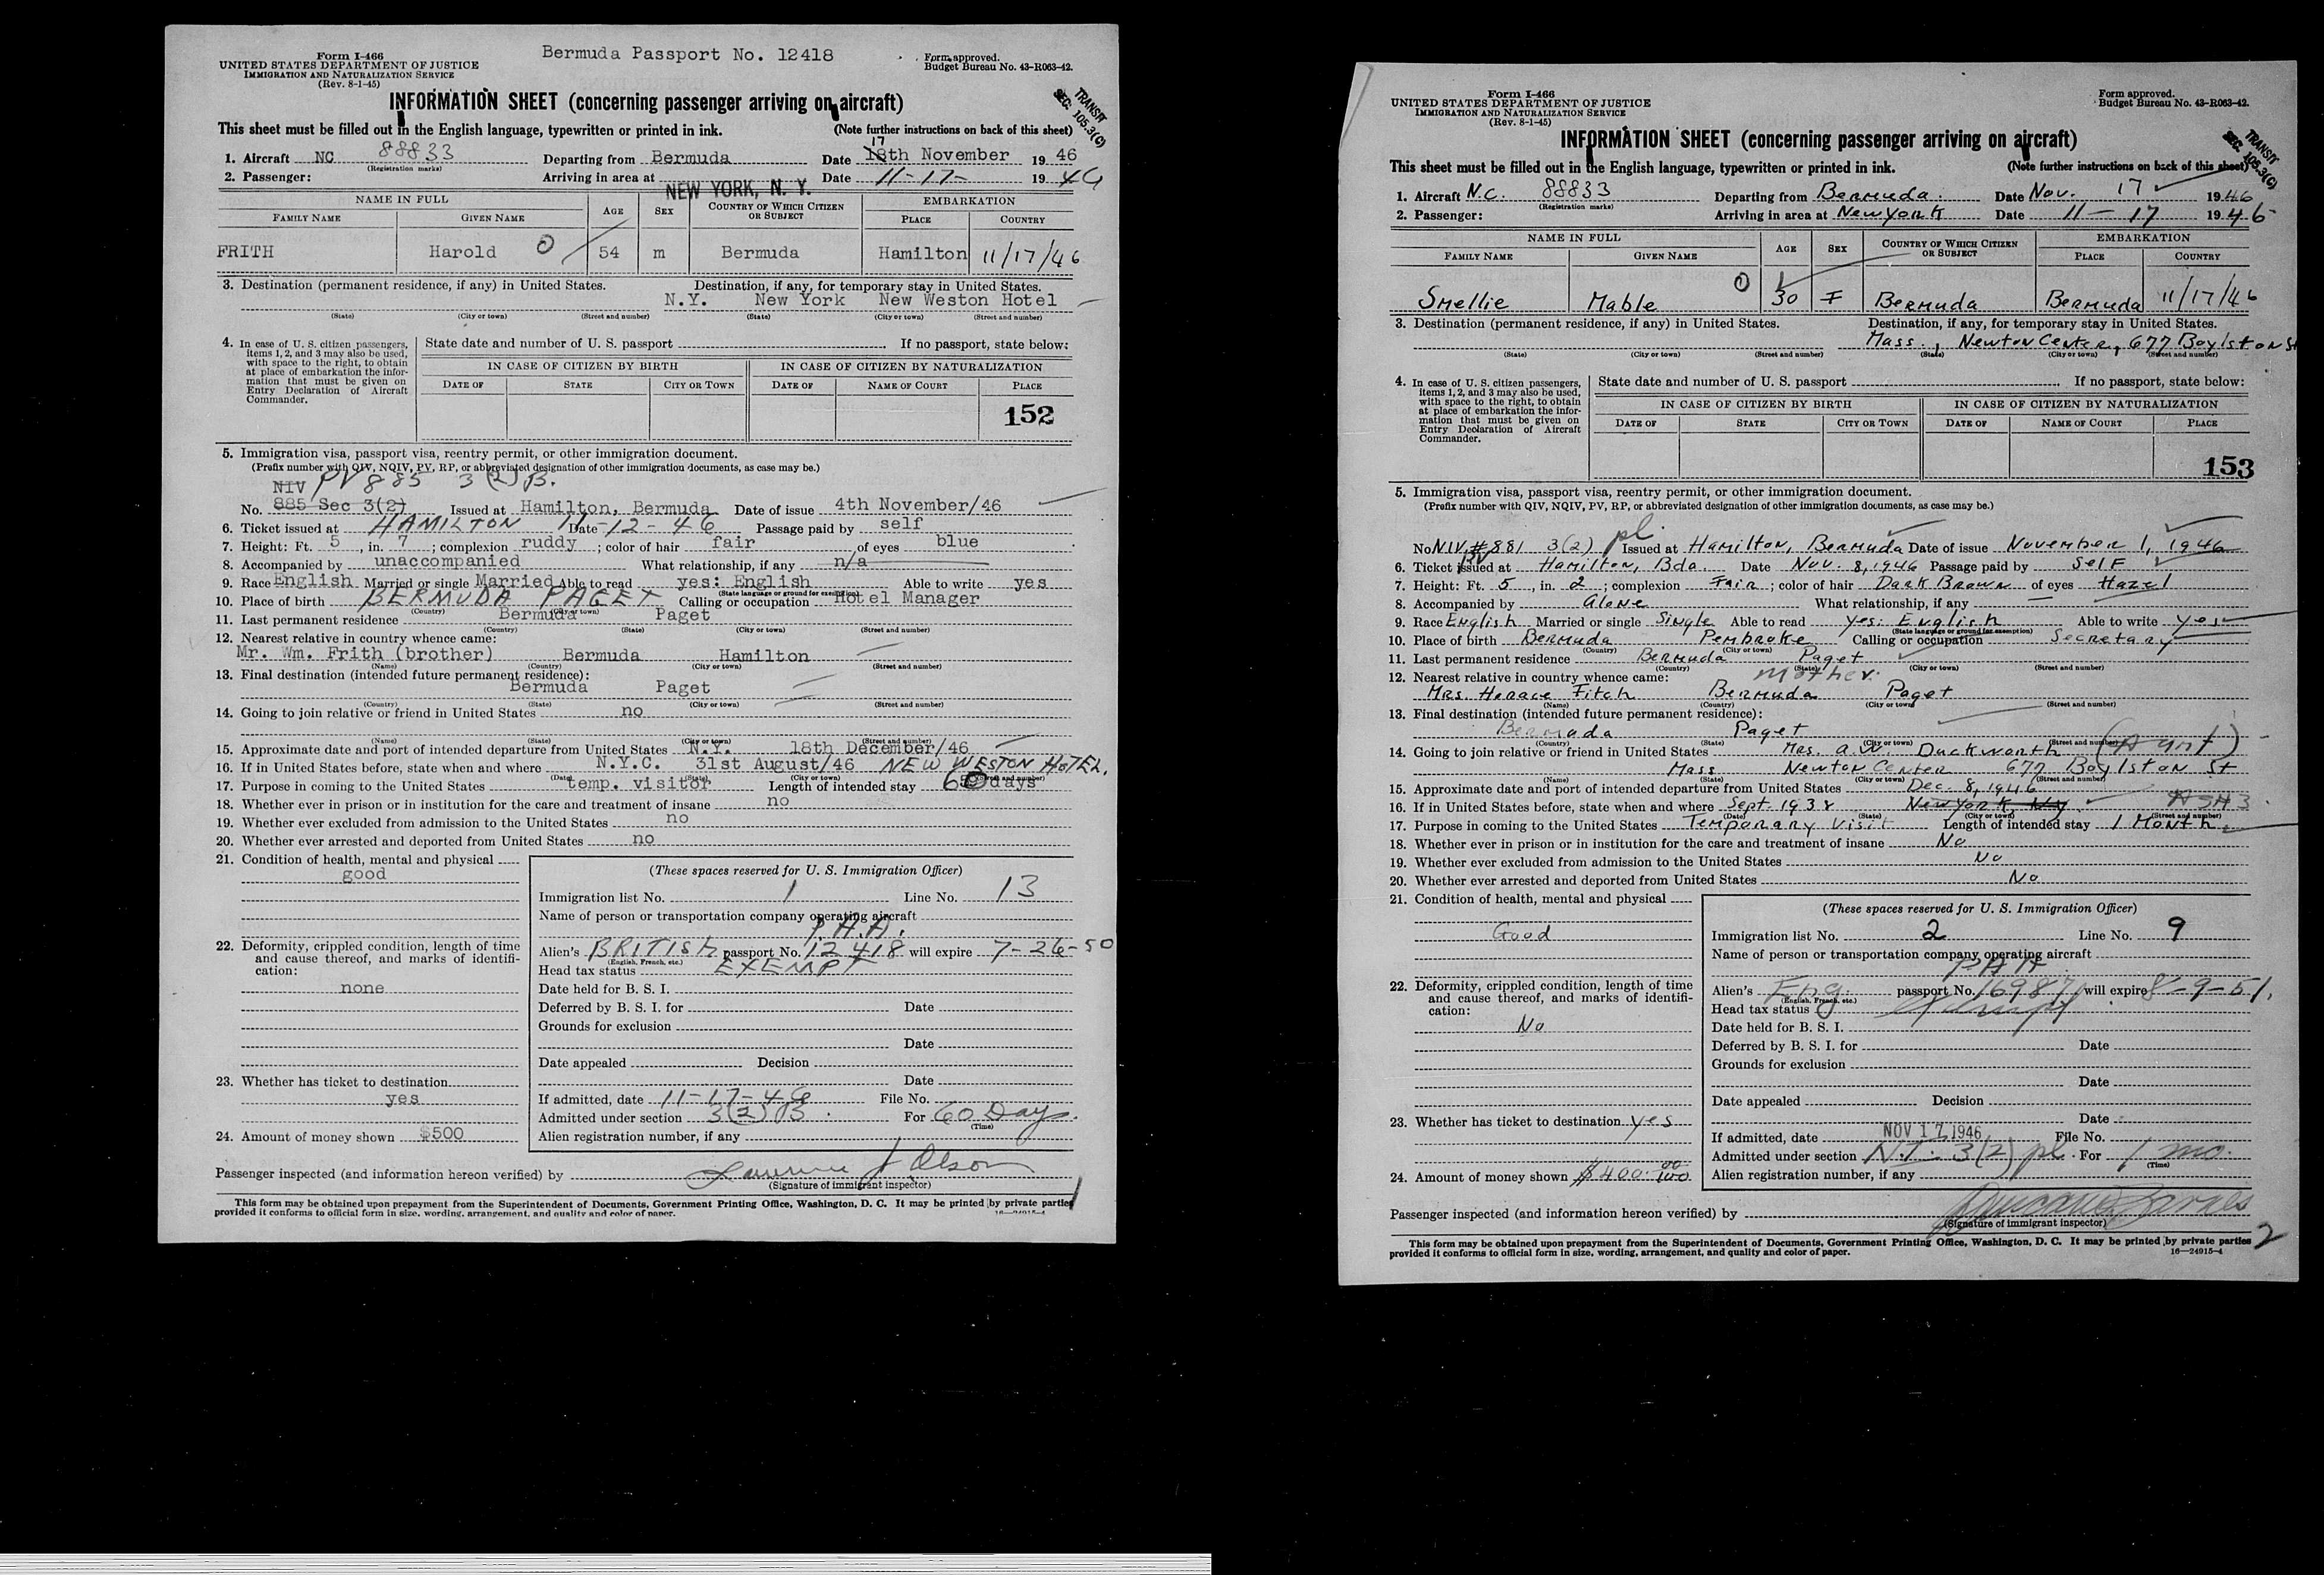 Form I-466
UNITED STATES DEPARTMENT OF JUSTICE
IMMIGRATION AND NATURALIZATION SERVICE
(Rev. 8-1-45)
Bermuda Passport No. 12418
Form approved.
Budget Bureau No. 43-R063-42.
INFORMATION SHEET (concerning passenger arriving on aircraft)
TRANSIT
SEC. 105.3(C)
This sheet must be filled out in the English language, typewritten or printed in ink. (Note further instructions on back of this sheet)
1. Aircraft NC 88833 Departing from Bermuda Date 18th 17 November 1946
(Registration marks)
2. Passenger: Arriving in area at NEW YORK, N. Y. Date 11-17- 1946
NAME IN FULL AGE SEX COUNTRY OF WHICH CITIZEN OR SUBJECT EMBARKATION
FAMILY NAME GIVEN NAME PLACE COUNTRY
FRITH Harold 0 54 m Bermuda Hamilton 11/17/46
3. Destination (permanent residence, if any) in United States. Destination, if any, for temporary stay in United States.
N.Y. New York New Weston Hotel
(State) (City or town) (Street and number) (State) (City or town) (Street and number)
4. In case of U. S. citizen passengers, items 1, 2, and 3 may also be used, with space to the right, to obtain at place of embarkation the information that must be given on Entry Declaration of Aircraft Commander.
State date and number of U. S. passport If no passport, state below:
IN CASE OF CITIZEN BY BIRTH IN CASE OF CITIZEN BY NATURALIZATION
DATE OF STATE CITY OR TOWN DATE OF NAME OF COURT PLACE
152
5. Immigration visa, passport visa, reentry permit, or other immigration document.
(Prefix number with QIV, NQIV, PV, RP, or abbreviated designation of other immigration documents, as case may be.)
NIV PV 885 3(2)B.
No. 885 Sec 3(2) Issued at Hamilton, Bermuda Date of issue 4th November/46
6. Ticket issued at HAMILTON Date 11-12-46 Passage paid by self
7. Height: Ft. 5, in. 7; complexion ruddy; color of hair fair of eyes blue
8. Accompanied by unaccompanied What relationship, if any n/a
9. Race English Married or single Married Able to read yes: English Able to write yes
(State language or ground for exemption)
10. Place of birth BERMUDA PAGET Calling or occupation Hotel Manager
(Country) (City or town)
11. Last permanent residence Bermuda Paget
(Country) (State) (City or town) (Street and number)
12. Nearest relative in country whence came:
Mr. Wm. Frith (brother) Bermuda Hamilton
(Name) (Country) (City or town) (Street and number)
13. Final destination (intended future permanent residence):
Bermuda Paget
(Country) (State) (City or town) (Street and number)
14. Going to join relative or friend in United States no
(Name) (State) (City or town) (Street and number)
15. Approximate date and port of intended departure from United States N.Y. 18th December/46
16. If in United States before, state when and where N.Y.C. 31st August/46 NEW WESTON HOTEL.
(Date) (State) (City or town) (Street and number)
17. Purpose in coming to the United States temp. visitor Length of intended stay 60 days
18. Whether ever in prison or in institution for the care and treatment of insane no
19. Whether ever excluded from admission to the United States no
20. Whether ever arrested and deported from United States no
21. Condition of health, mental and physical
good
22. Deformity, crippled condition, length of time and cause thereof, and marks of identification:
none
23. Whether has ticket to destination
yes
24. Amount of money shown $500
(These spaces reserved for U. S. Immigration Officer)
Immigration list No. 1 Line No. 13
Name of person or transportation company operating aircraft
P.A.A.
Alien's BRITISH passport No. 12418 will expire 7-26-50
(English, French, etc.)
Head tax status EXEMPT
Date held for B. S. I.
Deferred by B. S. I. for Date
Grounds for exclusion
Date
Date appealed Decision
Date
If admitted, date 11-17-46 File No.
Admitted under section 3(2)B. For 60 Days.
(Time)
Alien registration number, if any
Passenger inspected (and information hereon verified) by Olson
(Signature of immigrant inspector)
This form may be obtained upon prepayment from the Superintendent of Documents, Government Printing Office, Washington, D. C. It may be printed by private parties
provided it conforms to official form in size, wording, arrangement, and quality and color of paper.
Form I-466
UNITED STATES DEPARTMENT OF JUSTICE
IMMIGRATION AND NATURALIZATION SERVICE
(Rev. 8-1-45)
Form approved.
Budget Bureau No. 43-R063-42.
INFORMATION SHEET (concerning passenger arriving on aircraft)
TRANSIT
SEC. 105.3(C)
This sheet must be filled out in the English language, typewritten or printed in ink. (Note further instructions on back of this sheet)
1. Aircraft N.C. 88833 Departing from Bermuda. Date Nov. 17 1946
(Registration marks)
2. Passenger: Arriving in area at New York Date 11-17 1946
NAME IN FULL AGE SEX COUNTRY OF WHICH CITIZEN OR SUBJECT EMBARKATION
FAMILY NAME GIVEN NAME PLACE COUNTRY
Smellie Mable 0 30 F Bermuda Bermuda 11/17/46
3. Destination (permanent residence, if any) in United States. Destination, if any, for temporary stay in United States.
Mass., Newton Center, 677 Boylston St
(State) (City or town) (Street and number) (State) (City or town) (Street and number)
4. In case of U. S. citizen passengers, items 1, 2, and 3 may also be used, with space to the right, to obtain at place of embarkation the information that must be given on Entry Declaration of Aircraft Commander.
State date and number of U. S. passport If no passport, state below:
IN CASE OF CITIZEN BY BIRTH IN CASE OF CITIZEN BY NATURALIZATION
DATE OF STATE CITY OR TOWN DATE OF NAME OF COURT PLACE
153
5. Immigration visa, passport visa, reentry permit, or other immigration document.
(Prefix number with QIV, NQIV, PV, RP, or abbreviated designation of other immigration documents, as case may be.)
No. NIV #881 3(2) pl Issued at Hamilton, Bermuda Date of issue November 1, 1946
6. Ticket issued at Hamilton, Bda. Date Nov. 8, 1946 Passage paid by Self
7. Height: Ft. 5, in. 2; complexion Fair; color of hair Dark Brown of eyes Hazel
8. Accompanied by alone What relationship, if any —
9. Race English Married or single Single Able to read Yes: English Able to write Yes
(State language or ground for exemption)
10. Place of birth Bermuda Pembroke Calling or occupation Secretary
(Country) (City or town)
11. Last permanent residence Bermuda Paget
(Country) (State) (City or town) (Street and number)
12. Nearest relative in country whence came: Mother.
Mrs. Horace Fitch Bermuda Paget
(Name) (Country) (City or town) (Street and number)
13. Final destination (intended future permanent residence):
Bermuda Paget
(Country) (State) (City or town) (Street and number)
14. Going to join relative or friend in United States Mrs. A.W. Duckworth (Aunt)
Mass Newton Center 677 Boylston St
(Name) (State) (City or town) (Street and number)
15. Approximate date and port of intended departure from United States Dec. 8, 1946
16. If in United States before, state when and where Sept. 1938 New York, NY
(Date) (State) (City or town) (Street and number)
17. Purpose in coming to the United States Temporary Visit Length of intended stay 1 Month
18. Whether ever in prison or in institution for the care and treatment of insane No
19. Whether ever excluded from admission to the United States No
20. Whether ever arrested and deported from United States No
21. Condition of health, mental and physical
Good
22. Deformity, crippled condition, length of time and cause thereof, and marks of identification:
No
23. Whether has ticket to destination Yes
24. Amount of money shown $400.00/100
(These spaces reserved for U. S. Immigration Officer)
Immigration list No. 2 Line No. 9
Name of person or transportation company operating aircraft
PAA
Alien's Eng. passport No. 16987 will expire 8-9-51.
(English, French, etc.)
Head tax status Exempt
Date held for B. S. I.
Deferred by B. S. I. for Date
Grounds for exclusion
Date
Date appealed Decision
Date
If admitted, date NOV 17 1946 File No.
Admitted under section 3(2) pl. For 1 mo.
(Time)
Alien registration number, if any
Passenger inspected (and information hereon verified) by
(Signature of immigrant inspector)
2
This form may be obtained upon prepayment from the Superintendent of Documents, Government Printing Office, Washington, D. C. It may be printed by private parties
provided it conforms to official form in size, wording, arrangement, and quality and color of paper. 16—24915-4